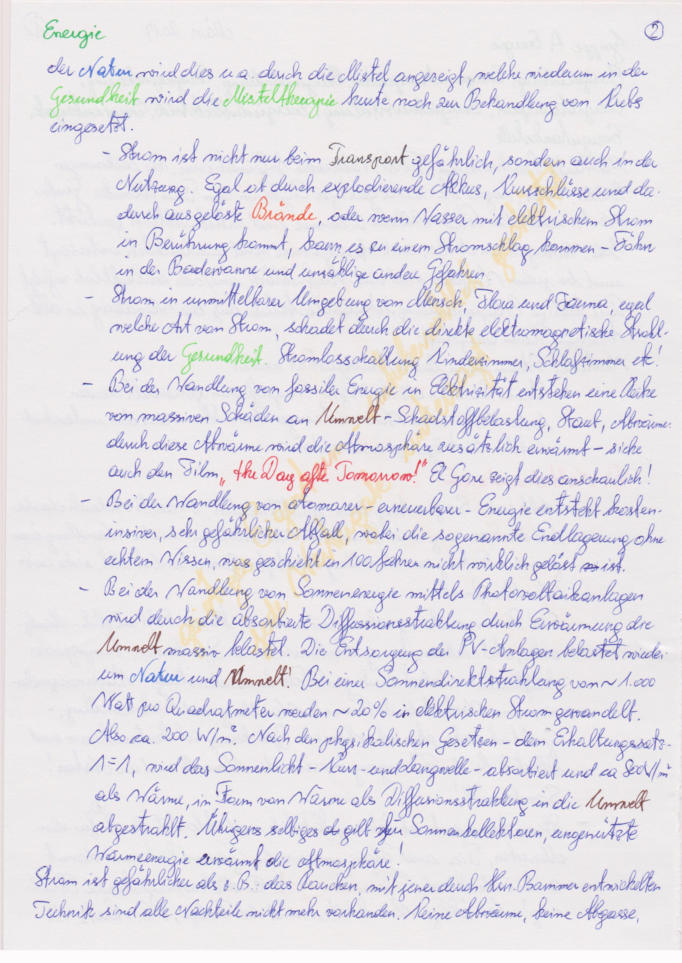 Energie
2
der Natur wird dies u.a. durch die Mistel angezeigt, welche wiederum in der
Gesundheit wird die Misteltherapie heute noch zur Behandlung von Krebs
eingesetzt.
- Strom ist nicht nur beim Transport gefährlich, sondern auch in der
Nutzung. Egal ob durch explodierende Akkus, Kurzschlüsse und da-
durch ausgelöste Brände, oder wenn Wasser mit elektrischem Strom
in Berührung kommt, kann es zu einem Stromschlag kommen - Föhn
in der Badewanne und unzählige andere Gefahren.
- Strom in unmittelbarer Umgebung von Mensch, Flora und Fauna, egal
welche Art von Strom, schadet durch die direkte elektromagnetische Strahl-
ung der Gesundheit. Stromlosschaltung Kinderzimmer, Schlafzimmer etc!
- Bei der Wandlung von fossiler Energie in Elektrizität entstehen eine Reihe
von massiven Schäden an Umwelt - Schadstoffbelastung, Staub, Abwärme
durch diese Abwärme wird die Atmosphäre zusätzlich erwärmt - siehe
auch den Film „the Day after Tomorrow!" El Gore zeigt dies anschaulich!
- Bei der Wandlung von atomarer - erneuerbarer - Energie entsteht kosten-
insiver, sehr gefährlicher Abfall, wobei die sogenannte Endlagerung ohne
echtem Wissen, was geschieht in 100 Jahren nicht wirklich gelöst ist.
- Bei der Wandlung von Sonnenenergie mittels Photovoltaikanlagen
wird durch die absorbierte Diffussionsstrahlung durch Erwärmung die
Umwelt massiv belastet. Die Entsorgung der PV-Anlagen belastet wieder-
um Natur und Umwelt! Bei einer Sonnendirektstrahlung von ~ 1.000
Watt pro Quadratmeter werden ~ 20% in elektrischen Strom gewandelt.
Also ca. 200 W/m². Nach den physikalischen Gesetzen - dem Erhaltungssatz -
1=1, wird das Sonnenlicht - Kurz- und Langwelle - absorbiert und ca 800 W/m²
als Wärme, in Form von Wärme als Diffusionsstrahlung in die Umwelt
abgestrahlt. Übrigens selbiges gilt für Sonnenkollektoren, ungenützte
Wärmeenergie erwärmt die Atmosphäre!
Strom ist gefährlicher als z.B. das Rauchen, mit jener durch Hrn. Bammer entwickelten
Technik sind alle Nachteile nicht mehr vorhanden. Keine Abwärme, keine Abgasse,